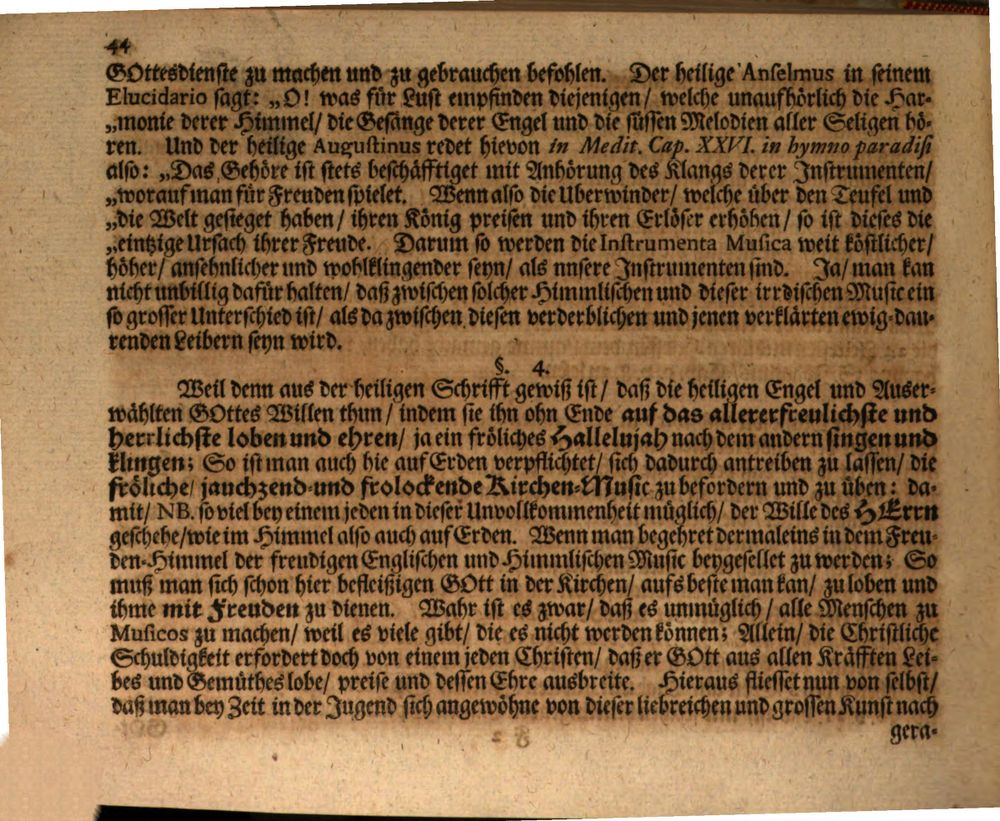 44
GOttesdienste zu machen und zu gebrauchen befohlen. Der heilige Anselmus in seinem
Elucidario sagt: „O! was für Lust empfinden diejenigen/ welche unaufhörlich die Har-
„monie derer Himmel/ die Gesänge derer Engel und die süssen Melodien aller Seligen hö-
ren. Und der heilige Augustinus redet hievon in Medit. Cap. XXVI. in hymno paradisi
also: „Das Gehöre ist stets beschäfftiget mit Anhörung des Klangs derer Instrumenten/
„worauf man für Freuden spielet. Wenn also die Uberwinder/ welche über den Teufel und
„die Welt gesieget haben/ ihren König preisen und ihren Erlöser erhöhen/ so ist dieses die
„eintzige Ursach ihrer Freude. Darum so werden die Instrumenta Musica weit köstlicher/
höher/ ansehnlicher und wohlklingender seyn/ als nnsere Instrumenten sind. Ja/ man kan
nicht unbillig dafür halten/ daß zwischen solcher Himmlischen und dieser irrdischen Music ein
so grosser Unterschied ist/ als da zwischen diesen verderblichen und jenen verklärten ewig-dau-
renden Leibern seyn wird.
§. 4.
Weil denn aus der heiligen Schrifft gewiß ist/ daß die heiligen Engel und Auser-
wählten GOttes Willen thun/ indem sie ihn ohn Ende auf das allererfreulichste und
herrlichste loben und ehren/ ja ein fröliches Hallelujah nach dem andern singen und
klingen; So ist man auch hie auf Erden verpflichtet/ sich dadurch antreiben zu lassen/ die
fröliche/ jauchzend-und frolockende Kirchen-Music zu befordern und zu üben: da-
mit/ NB. so viel bey einem jeden in dieser Unvollkommenheit müglich/ der Wille des HErrn
geschehe/ wie im Himmel also auch auf Erden. Wenn man begehret dermaleins in dem Freu-
den-Himmel der freudigen Englischen und Himmlischen Music beygesellet zu werden; So
muß man sich schon hier befleißigen GOtt in der Kirchen/ aufs beste man kan/ zu loben und
ihme mit Freuden zu dienen. Wahr ist es zwar/ daß es unmüglich/ alle Menschen zu
Musicos zu machen/ weil es viele gibt/ die es nicht werden können; Allein/ die Christliche
Schuldigkeit erfordert doch von einem jeden Christen/ daß er GOtt aus allen Kräfften Lei-
bes und Gemüthes lobe/ preise und dessen Ehre ausbreite. Hieraus fliesset nun von selbst/
daß man bey Zeit in der Jugend sich angewöhne von dieser liebreichen und grossen Kunst nach
gera-